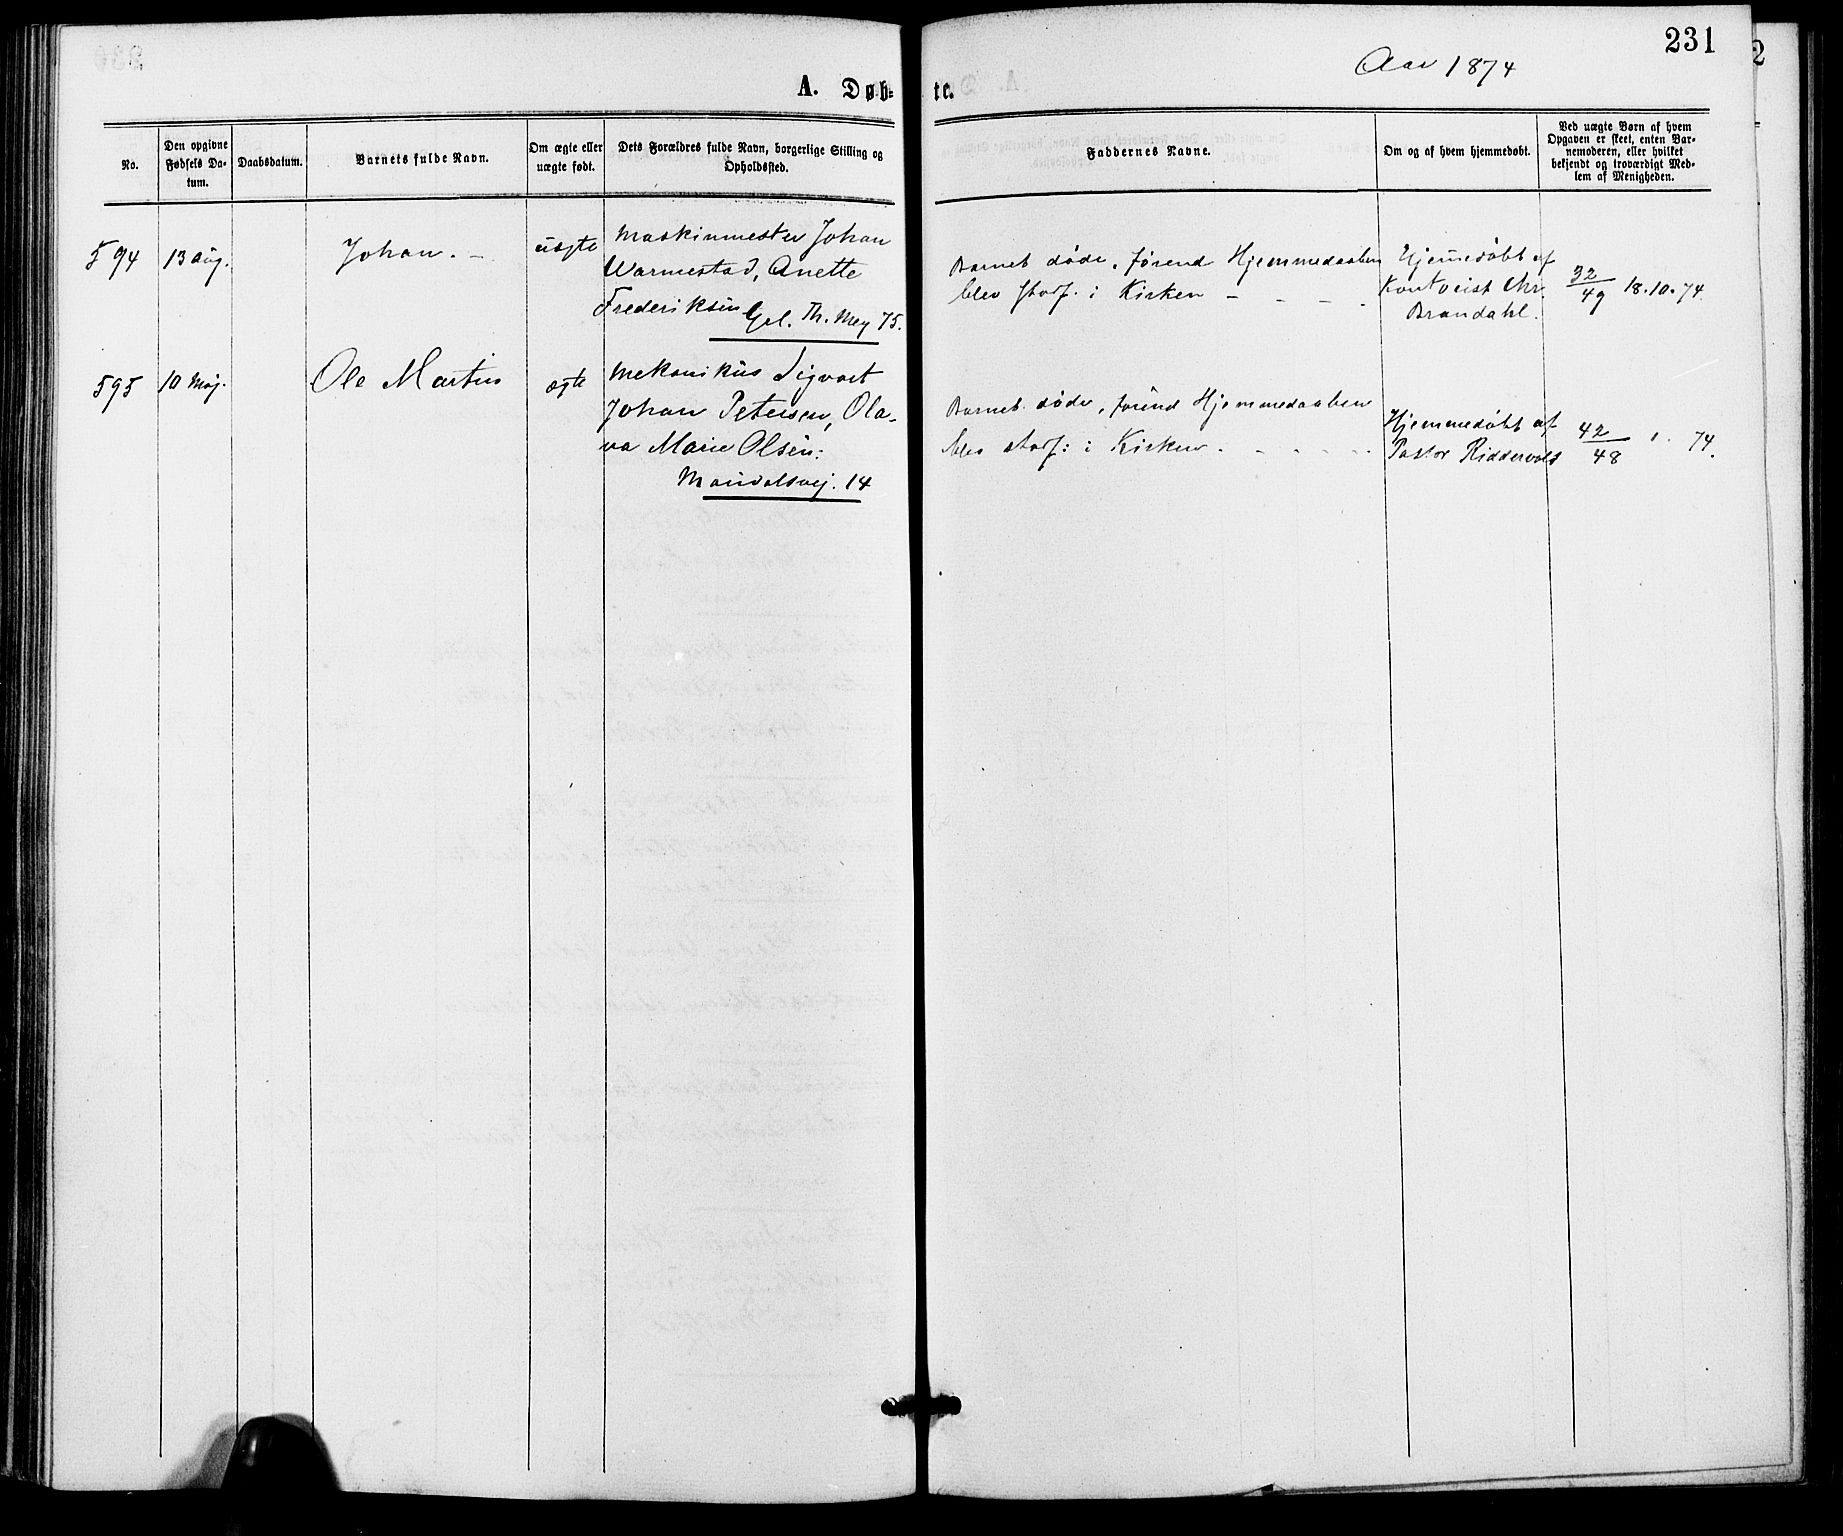 231
Aar 1874
A. Døb-
te.
No.
Den opgivne
Fødsels Da-
tum.
Daabsdatum.
Barnets fulde Navn.
Om ægte eller
uægte født.
Dets Forældres fulde Navn, borgerlige Stilling og
Opholdssted.
Faddernes Navne.
Om og af hvem hjemmedøbt.
Ved uægte Børn af hvem
Opgaven er skeet, enten Bar-
nemoderen, eller hvilket
bekjendt og troværdigt Med-
lem af Menigheden.
594
13 Aug.
Johan. -
uægte
Maskinmester Johan
Warmestad, Anette
Frederiksen
Th. Mey 75.
Barnet døde, førend Hjemmedaaben
blev stadf. i Kirken - - - -
Hjemmedøbt af
Chr.
Brandahl.
32/49 18.10.74.
595
10 Maj.
Ole Martin
ægte
Mekanikus Sigvart
Johan Petersen, Ola-
va Marie Olsen:
14
Barnet døde, førend Hjemmedaaben
blev stadf: i Kirken. - - - - -
Hjemmedøbt af
Pastor Riddervold
42/48 1. 74.